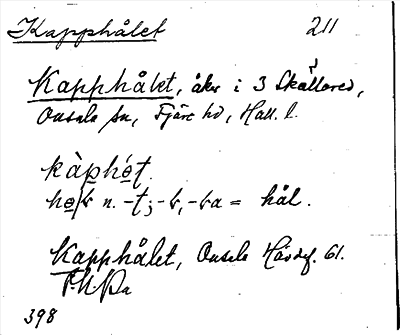 Kapphålet 211
Kapphålet, åker i 3 Skållared,
Onsala sn, Fjäre hd, Hall. l.
kàphót.
n. -t; = hål.
Kapphålet, Onsala Hävdf. 61.
398